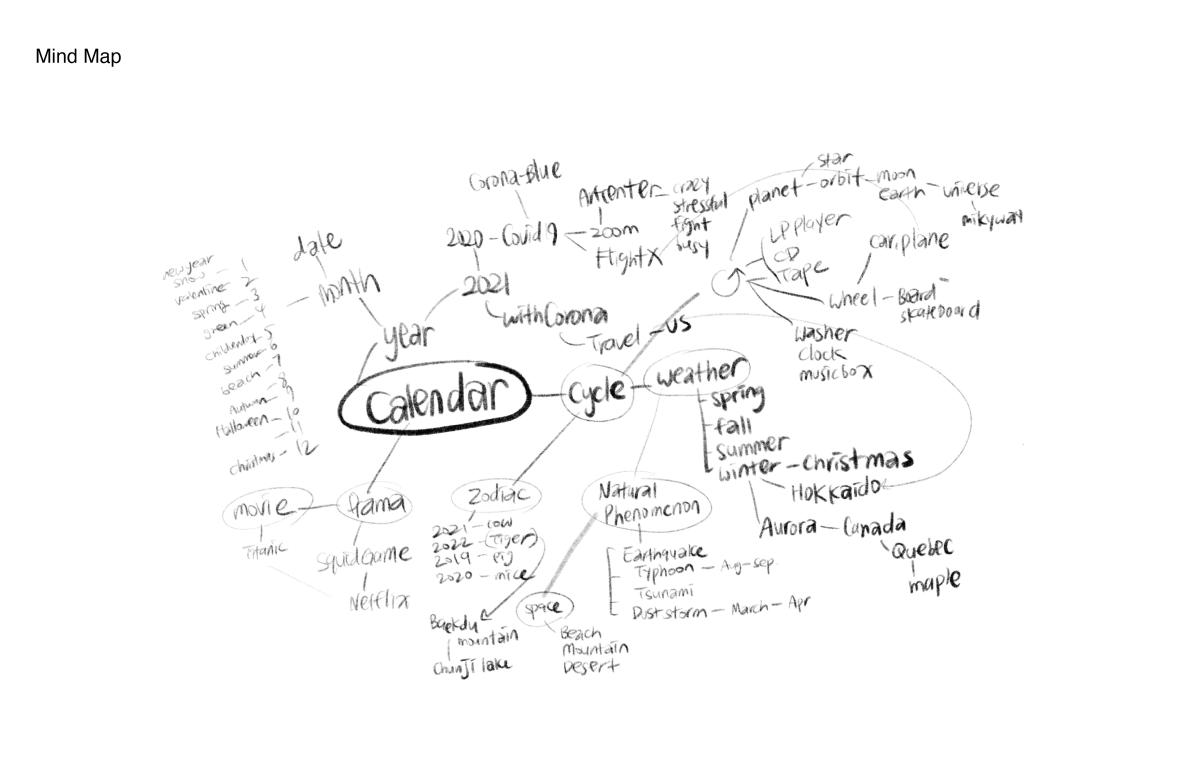 Mind Map
Calendar
year
month
date
new year
snow - 1
valentine - 2
spring - 3
green - 4
5
summer 6
beach - 7
- 8
Autumn - 9
Halloween - 10
- 11
christmas - 12
2021
2020 - Covid 9
Corona-Blue
Artcenter
zoom
Flight X
crazy
stressful
fight
busy
with Corona
Travel - US
Cycle
planet - orbit - moon
star
earth - universe
mikyway
LP player
CD
Tape
car, plane
wheel - Board
skateboard
Washer
clock
music box
weather
spring
fall
summer
winter - christmas
Hokkaido
Aurora - Canada
Quebec
maple
Natural
Phenomenon
Earthquake
Typhoon - Aug-sep
Tsunami
Dust storm - March - Apr
space
Beach
Mountain
Desert
Zodiac
2021 - cow
2022 - Tiger
2019 - pig
2020 - mice
Baekdu
mountain
ChunJi lake
movie
Titanic
SquidGame
Netflix